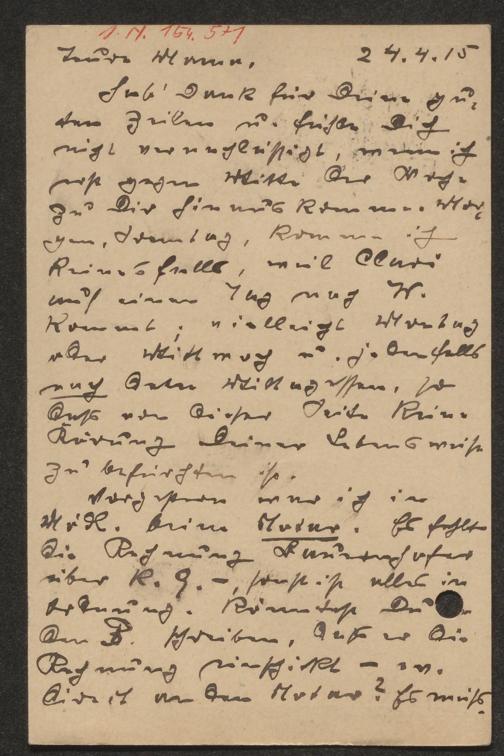 J. N. 164.571
Teure Mama, 24.4.15
Hab' Dank für Deine gu-
ten Zeilen u. fühle Dich
nicht vernachlässigt, wenn ich
erst gegen Mitte der Woche
zu Dir hinauskomme. Mor-
gen, Sonntag, komme ich
keinesfalls, weil Clari
auf einen Tag nach W.
kommt; vielleicht Montag
oder Mittwoch u. jedenfalls
nach dem Mittagessen, so
daß von dieser Seite keine
Störung Deiner Lebensweise
zu befürchten ist.
Vorgestern war ich in
Möd. beim Notar. Es fehlte
die Rechnung
über K. 9.–, sonst ist alles in
Ordnung. Könntest Du
dem B. schreiben, daß er die
Rechnung einschickt – ev.
direct an den Notar? Es muß